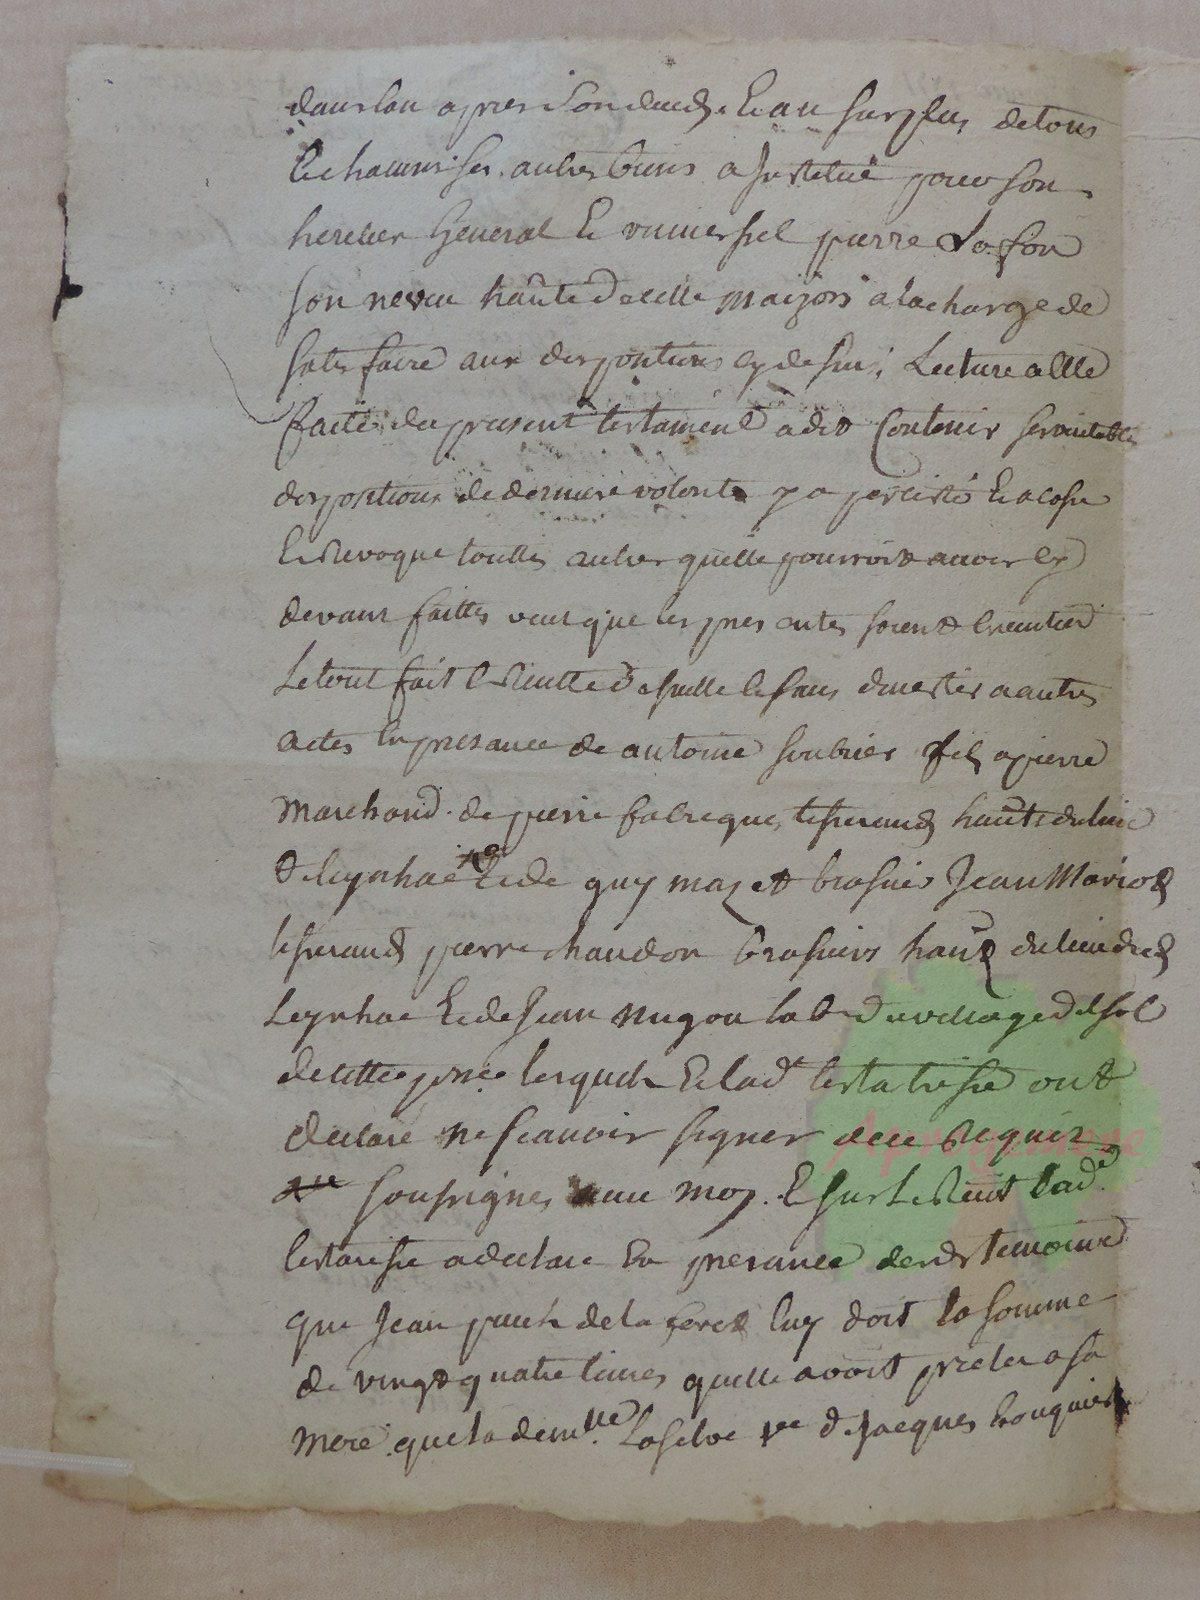 dans lan apres son deces. Et au surplus de tous
Et chacuns ses autres biens a Institué pour son
heretier General Et universsel pierre Lafon
son neveu haûte de cette maizon a la charge de
satisfaire aux dispontions cy dessus, Lecture a Elle
faitte du present testament a dit Contenir ses veritables
dispositions de derniere volonte y a percisté Et a cassé
Et Revoque touttes autres quelle pourroit avoir cy
devant faittes veut que les pntes soient Executtées
Le tout fait de suitte sans divertir a autres
actes En presance de antoine soubrier fils a pierre
Marchand de pierre fabregues tisserand haûts du lieu
de leynhac Et de guy mazet brassier Jean Mariot
tisserand pierre chaudon brassiers haûts du lieu de
Leynhac Et de Jean nugou lab du village del sol
de cette psse lesquels Et lad testatrisse ont
declaré ne scavoir signer de ce Requis
soussignes avec moy. Et sur Le Recit lad
testatrisse a declaré En presance desds temoins
que Jean puech de la lui doit la somme
de vingt quatre livres quelle avoit pretée a sa
mere que la demlle Laselve ve de Jacques bouquier